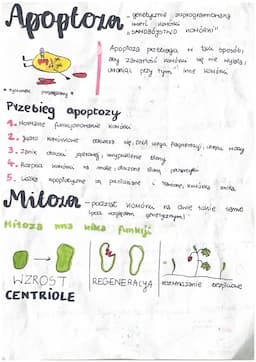 Apoptoza - genetycznie zaprogramowana
śmierć komórki
"SAMOBÓJSTWO KOMÓRKI"
Apoptoza przebiega w taki sposób,
aby zawartość komórki się nie wylała i
uraniała przy tym inne komórki
Przebieg apoptozy
1. Normalne funkcjonowanie komórki
2. Jądro komórkowe DNA ulega fragmentacji,
3. Zanik otoczki jądrowej,
4. Rozpad komórki na małe, otoczone błoną pęcherzyki
5. Ciałka apoptotyczne są pochłaniane i trawione, komórka znika
Mitoza - podział komórki na dwie takie same
(pod względem genetycznym)
Mitoza ma kilka funkcji
WZROST
REGENERACJA
rozmnażanie bezpłciowe
CENTRIOLE